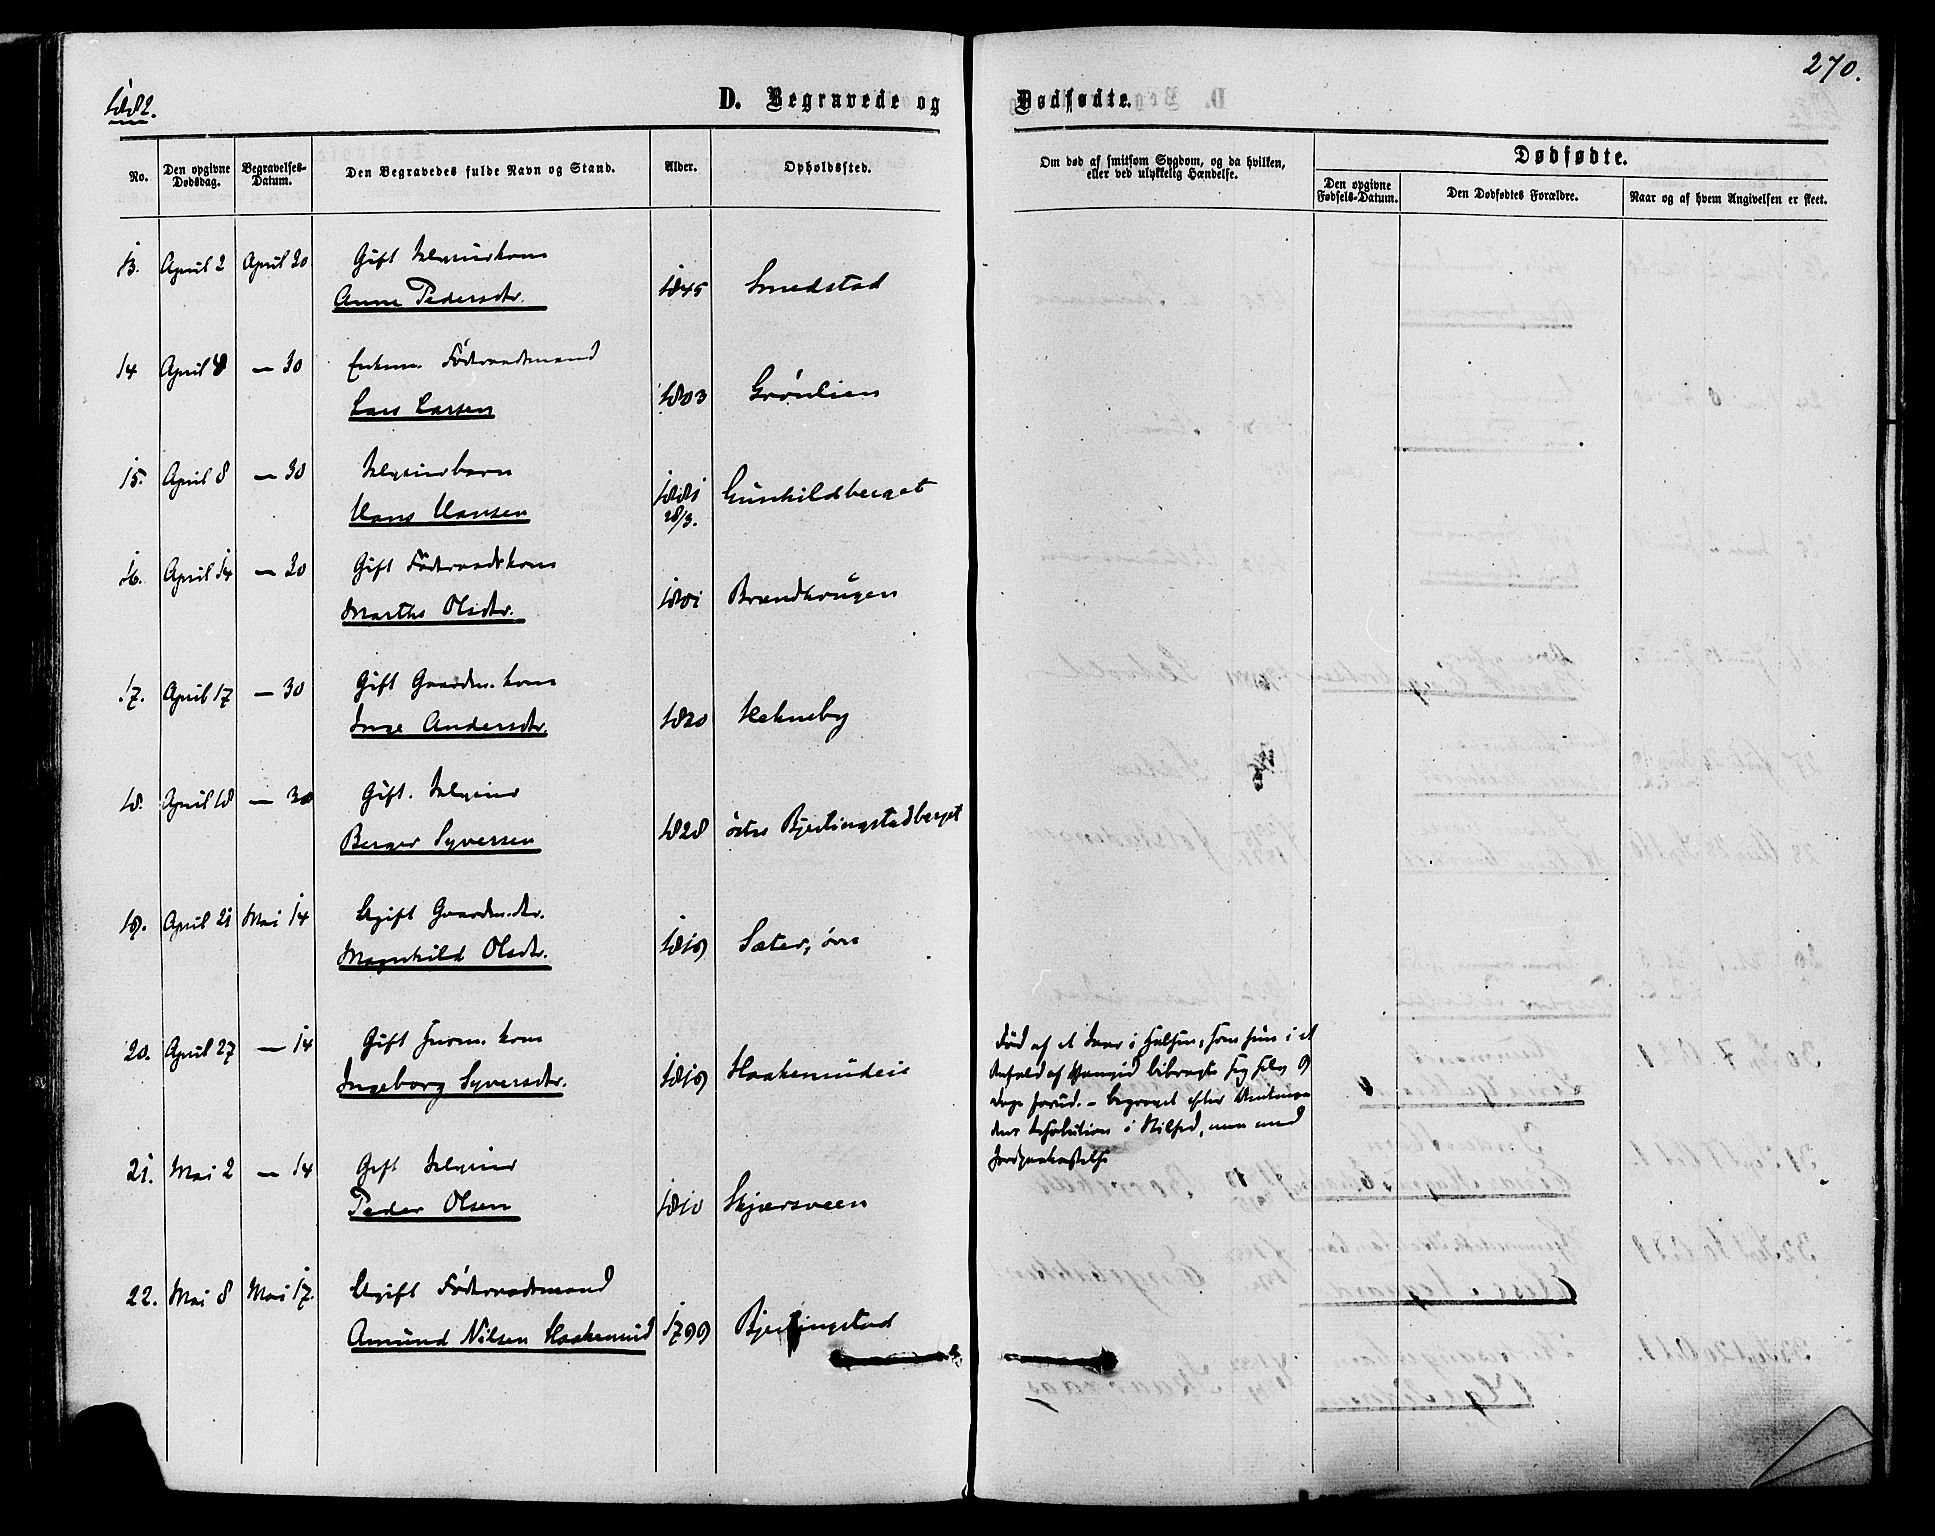 270.
1882.
D. Begravede og Dødfødte.
No.
Den opgivne Dødsdag.
Begravelses-Datum.
Den Begravedes fulde Navn og Stand.
Alder.
Opholdssted.
Om død af smitsom Sygdom, og da hvilken, eller ved ulykkelig Hændelse.
Dødfødte.
Den opgivne Fødsels-Datum.
Den Dødfødtes Forældre.
Naar og af hvem Angivelsen er skeet.
13. April 2 April 30 Gift
Anne Pedersdtr. 1845 Smedstad
14 April 8 — 30 Enkem. Föderaadsmand
Lars Larsen 1803 Grönlien
15. April 8 — 30
Hans Hansen 1881 28/3. Gunhildberget
16. April 14 — 30 Gift Föderaadskone
Marthe Olsdtr. 1801 Brændhaugen
17. April 17 — 30 Gift Gaardm. kone
Inge Andersdtr. 1820
18. April 18 — 30 Gift.
Berger Syversen 1828 östre Bjertingstadberget
19. April 21 Mai 14 Ugift Gaardm.dtr.
Magnhild Olsdtr. 1819 Sæter, övre
20. April 27 — 14 Gift kone
Ingeborg Syversdtr. 1819
Död af et Saar i Halsen, som hun i et
Anfald af bibragte sig selv 9
Dage forud. – begravet efter Amtman-
dens Resolution i Stilhed, men med
Jordpaakastelse
21. Mai 2 — 14 Gift
Peder Olsen 1810 Skjærsveen
22. Mai 8 Mai 17. Ugift Föderaadsmand
Amund Nilsen Haakenrud 1799 Bjertingstad